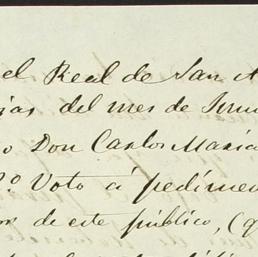 el Real de San A
ias del mes de Juni
o Don Carlos Maria
2.º Voto á pedime
or de este público, (q